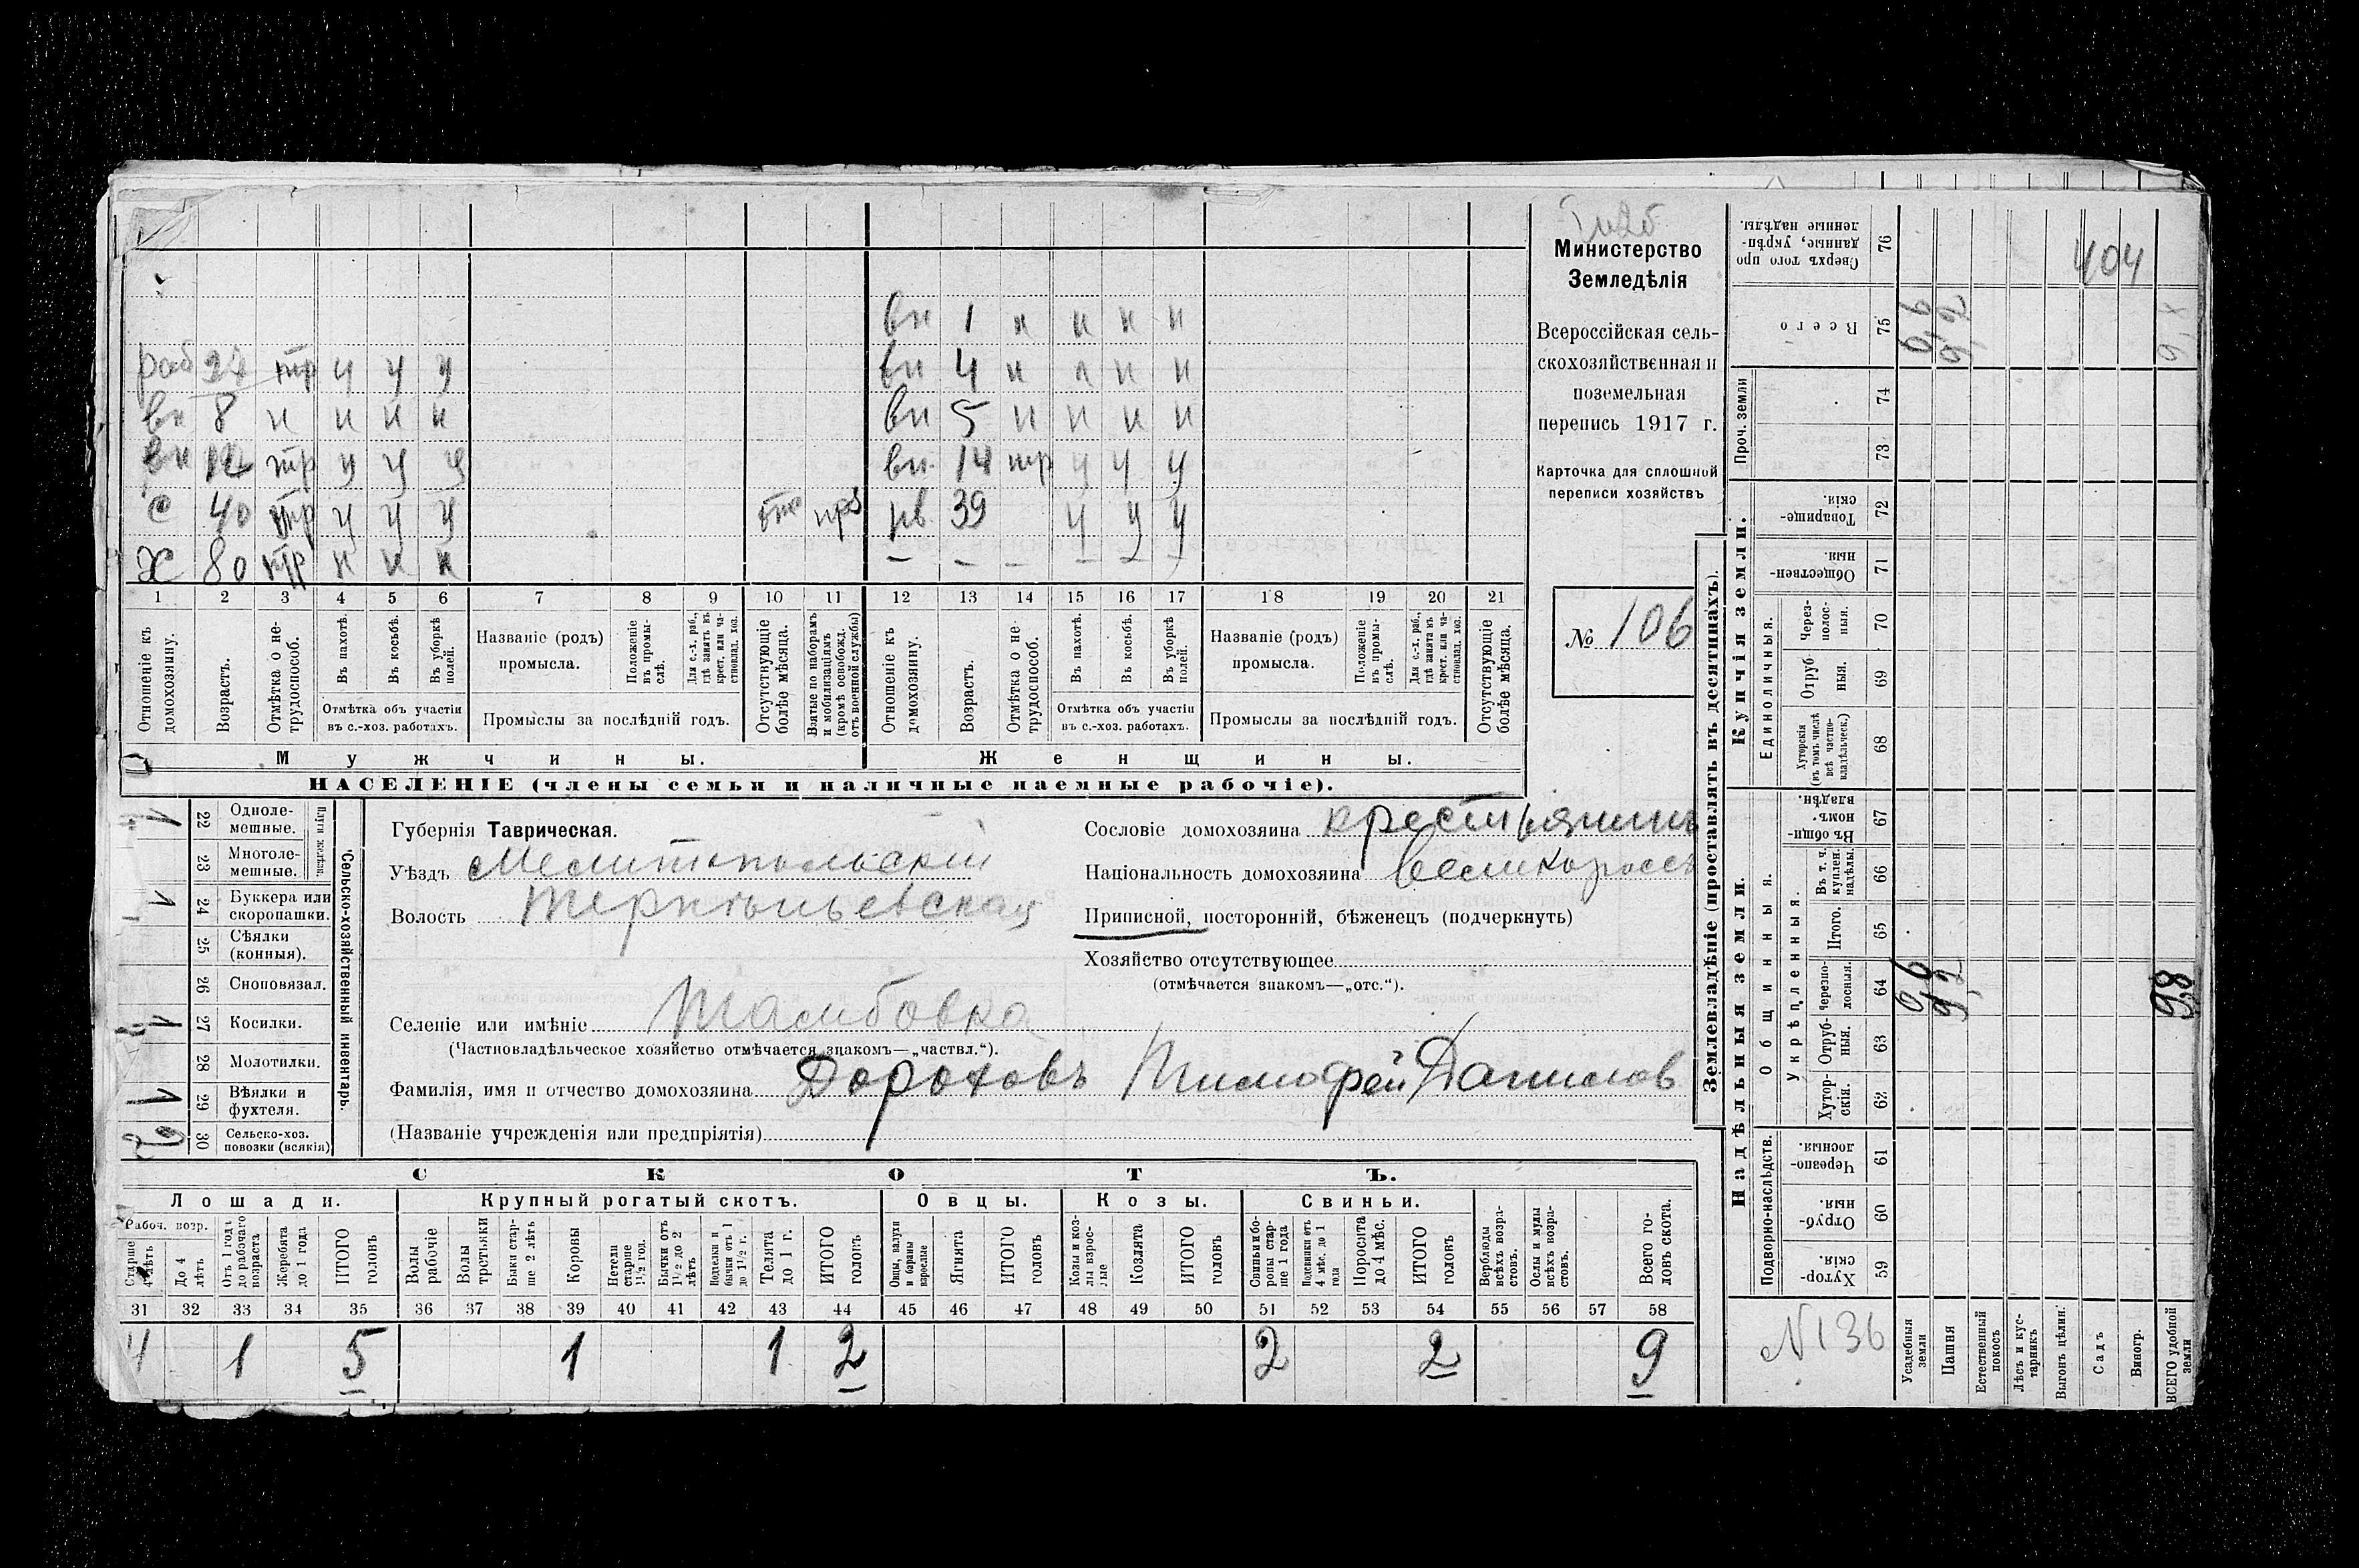 Министерство
Земледѣлія
Всероссійская сель-
скохозяйственная и
поземельная
перепись 1917 г.
Карточка для сплошной
переписи хозяйствъ
№ 106
вн 1 н н н н
раб тр у у у вн 4 н н н н
вн 8 н н н н вн 5 н н н н
вн 12 тр у у у вн 14 тр у у у
с 40 тр у у у 39 у у у
Х 80 н н н — — — — — —
1 2 3 4 5 6 7 8 9 10 11 12 13 14 15 16 17 18 19 20 21
Отношеніе къ домохозяину.
Возрастъ.
Отмѣтка о не-трудоспособ.
Въ пахотѣ.
Въ косьбѣ.
Въ уборкѣ полей.
Отмѣтка объ участіи въ с.-хоз. работахъ.
Названіе (родъ) промысла.
Положеніе въ промы-слѣ.
Для с.-х. раб., гдѣ занятъ въ крест. или ча-стновлад. хоз.
Промыслы за послѣдній годъ.
Отсутствующіе болѣе мѣсяца.
Взятые по наборамъ и мобилизаціямъ (кромѣ освобожд. отъ военной службы)
Отношеніе къ домохозяину.
Возрастъ.
Отмѣтка о не-трудоспособ.
Въ пахотѣ.
Въ косьбѣ.
Въ уборкѣ полей.
Отмѣтка объ участіи въ с.-хоз. работахъ.
Названіе (родъ) промысла.
Положеніе въ промы-слѣ.
Для с.-х. раб., гдѣ занята въ крест. или ча-стновлад. хоз.
Промыслы за послѣдній годъ.
Отсутствующіе болѣе мѣсяца.
Мужчины. Женщины.
НАСЕЛЕНІЕ (члены семьи и наличные наемные рабочіе).
Сельско-хозяйственный инвентарь.
Плуги желѣз.
22 Одноле-мешные. 1
23 Многоле-мешные.
24 Буккера или скоропашки. 1
25 Сѣялки (конныя).
26 Сноповязал.
27 Косилки. 1
28 Молотилки.
29 Вѣялки и фухтеля. 1
30 Сельско-хоз. повозки (всякія) 2
Губернія Таврическая.
Уѣздъ Мелитопольскій
Волость Терпѣньевская
Селеніе или имѣніе Тамбовка
(Частновладѣльческое хозяйство отмѣчается знакомъ—„частвл.“).
Фамилія, имя и отчество домохозяина Дороховъ Тимофей Данилов
(Названіе учрежденія или предпріятія)
Сословіе домохозяина крестьянинъ
Національность домохозяина великороссъ
Приписной, посторонній, бѣженецъ (подчеркнуть)
Хозяйство отсутствующее
(отмѣчается знакомъ—„отс.“).
СКОТЪ.
Лошади. Крупный рогатый скотъ. Овцы. Козы. Свиньи.
Рабоч. возр.
Старше 4 лѣтъ
До 4 лѣтъ
Отъ 1 года до рабочаго возраста
Жеребята до 1 года
ИТОГО головъ
Волы рабочіе
Волы третьяки
Быки стар-ше 2 лѣтъ
Коровы
Нетели старше 1½ год.
Бычки отъ 1½ до 2 лѣтъ
Водтелки и бычки отъ 1 до 1½ г.
Телята до 1 г.
ИТОГО головъ
Овцы, валухи и бараны взрослые
Ягнята
ИТОГО головъ
Козы и коз-лы взрос-лые
Козлята
ИТОГО головъ
Свиньи и бо-ровы стар-ше 1 года
Подсвинки отъ 4 мѣс. до 1 года
Поросята до 4 мѣс.
ИТОГО головъ
Верблюды всѣхъ возра-стовъ.
Ослы и мулы всѣхъ возра-стовъ.
Всего го-ловъ скота.
31 32 33 34 35 36 37 38 39 40 41 42 43 44 45 46 47 48 49 50 51 52 53 54 55 56 57 58
4 1 5 1 1 2 2 2 9
Землевладѣніе (проставлять въ десятинахъ).
Купчія земли.
Надѣльныя земли.
Сверхъ того про данные, укрѣп-ленные надѣлы. 76
404
Всего 75
Проч. земли 74 73
Товарище-скія. 72
Обществен-ныя. 71
Единоличныя.
Через-полос-ныя. 70
Отруб ныя. 69
Хуторскія (въ томъ числѣ всѣ частно-владѣльческ.) 68
Общинныя.
Въ общи-номъ владѣн. 67
Укрѣпленныя.
Въ т. ч. куплен. надѣлы. 66
Итого. 65
Черезпо-лосныя. 64
Отруб-ныя. 63
Хутор-скія. 62
Подворно-наслѣдств.
Черезпо-лосныя. 61
Отруб-ныя. 60
Хутор-скія. 59
N 136
Усадебныя земли
Пашня
Естественный покосъ
Лѣсъ и кус-тарникъ
Выгонъ цѣлин.
Садъ
Виногр.
ВСЕГО удобной земли